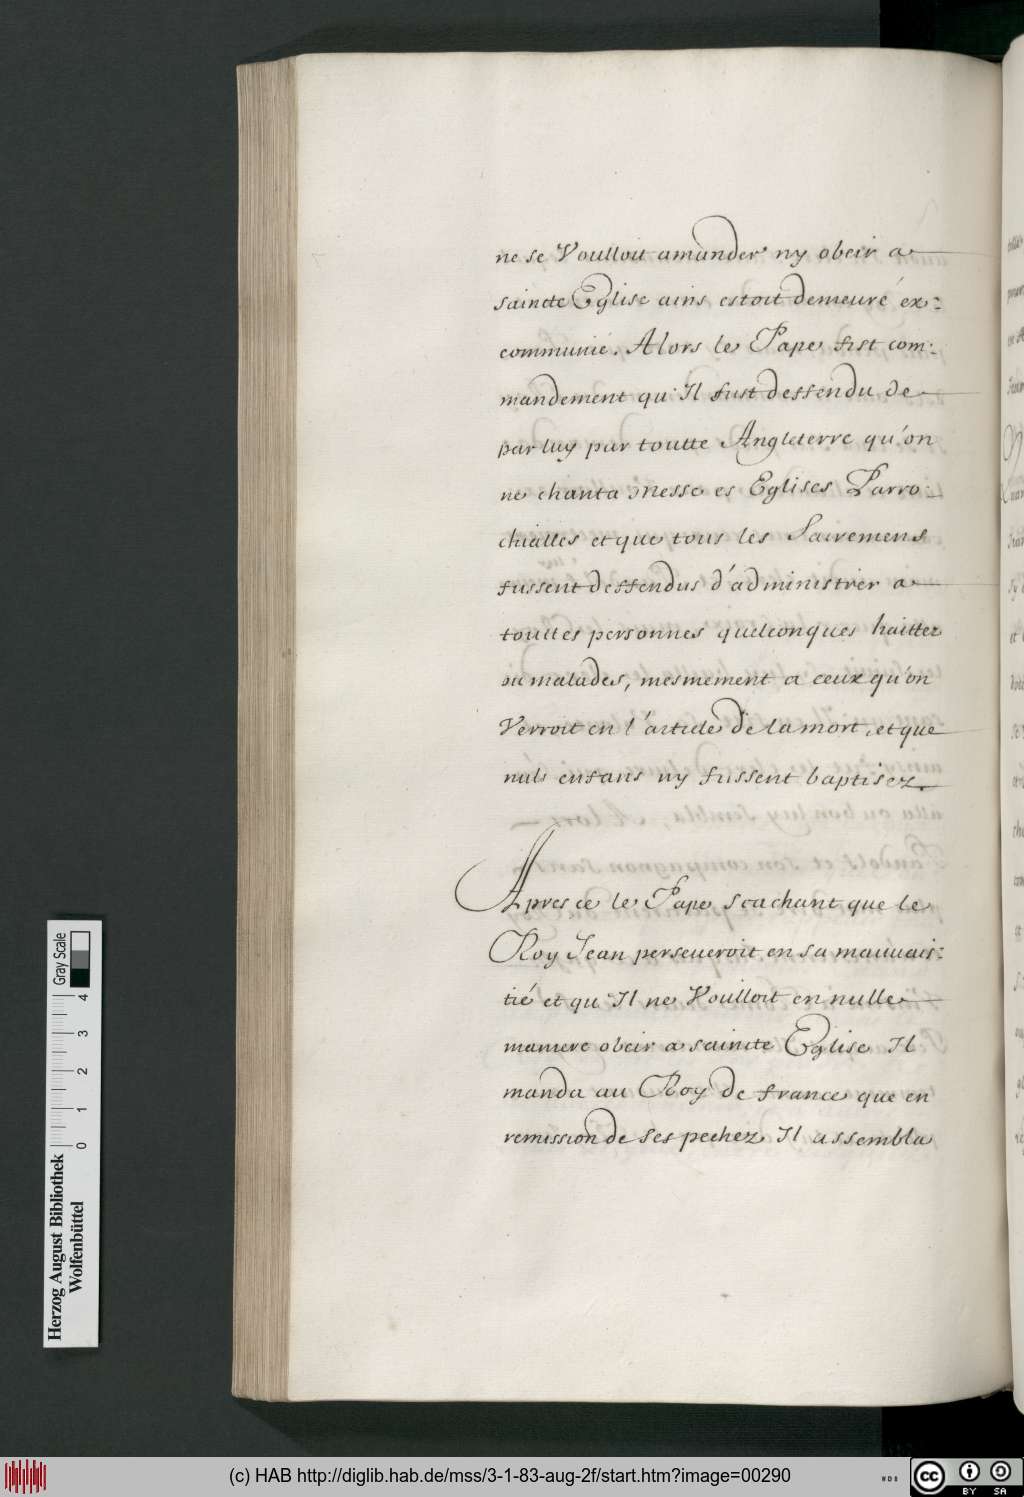 ne se Voulloit amander ny obeir a
saincte Eglise ains estoit demeuré ex:
communié. Alors le Pape fist com:
mandement qu'Il fust deffendu de
par luy par toutte Angleterre qu'on
ne chanta messe es Eglises Parro:
chialles et que tous les Sairemens
fussent deffendus d'administrer a
touttes personnes quelconques haittez
ou malades, mesmement a ceux qu'on
Verroit en l'article de la mort, et que
nuls enfans ny fussent baptisez.
Apres ce le Pape scachant que le
Roy Jean perseueroit en sa mauuais:
tié et qu'Il ne Voulloit en nulle
maniere obeir a saincte Eglise Il
manda au Roy de france que en
remission de ses pechez Il assembla
Herzog August Bibliothek
Wolfenbüttel
0 1 2 3 4
Gray Scale
(c) HAB http://diglib.hab.de/mss/3-1-83-aug-2f/start.htm?image=00290
WDB
cc BY SA